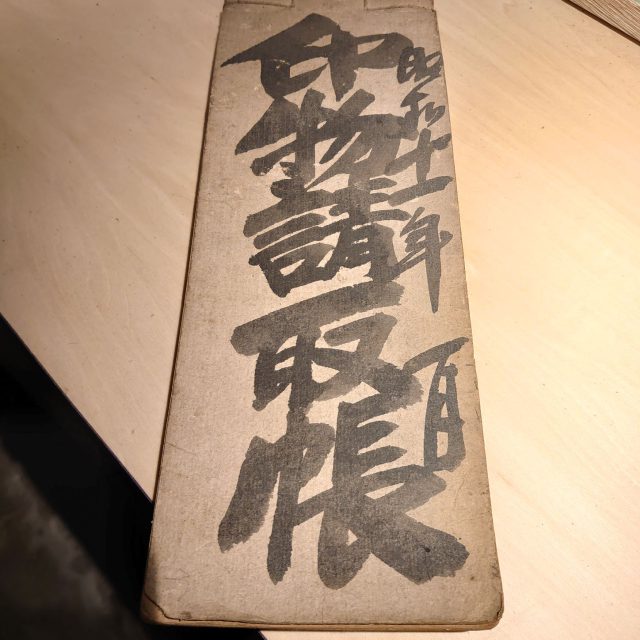 昭和十一年 一月
印物請取帳